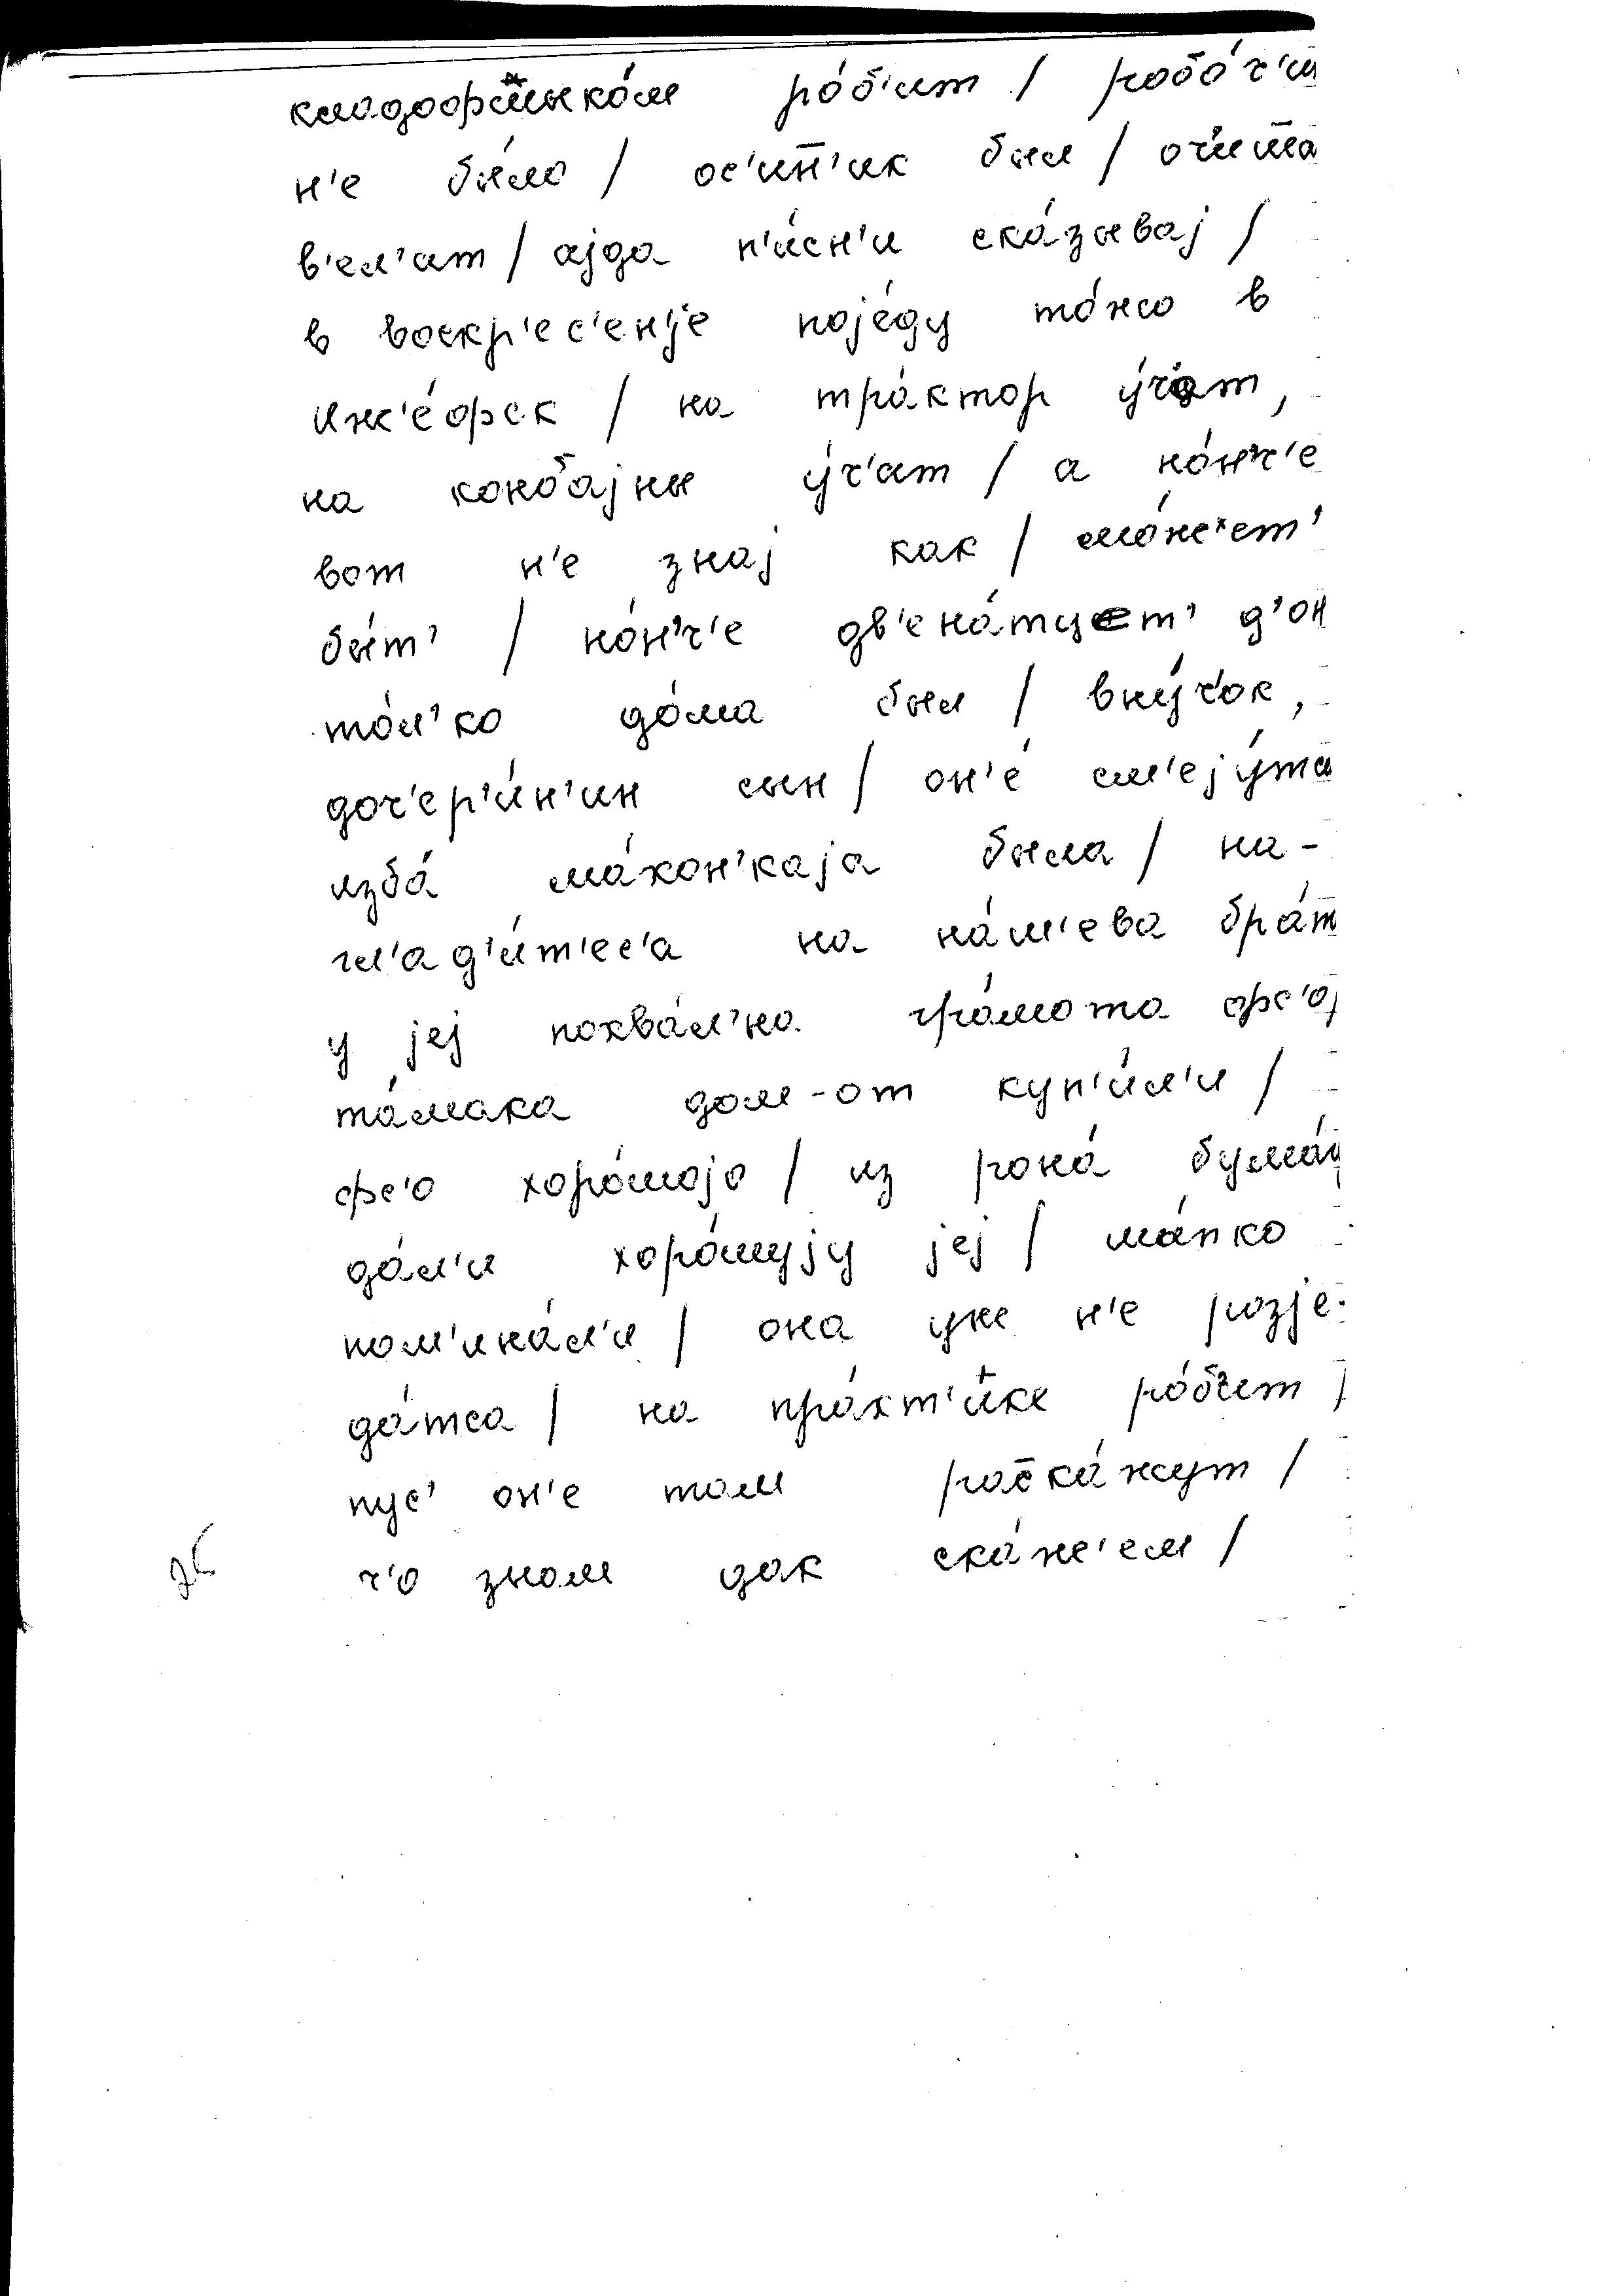 кладофшыко́м ро́б'ит / робо́ч'и
н'е бы́ло / ос'ин̄'ик был / оч'ит̄а
в'ел'ат / ајда п'и́сн'и ска́зывај /
в воскр'ес'ен'је поје́ду то́жо в
иж'е́фск / на тра́ктор у́ч'ат,
на конбајны у́ч'ат / а но́н'ч'е
вот н'е знај как / мо́ж'ет'
бы́т' / но́н'ч'е дв'ена́тцет' д'он
то́л'ко до́ма был / вну́ч'ок,
доч'ер'и́н'ин сын / он'е́ см'еју́тца
изба́ ма́хон'каја была / на-
гл'ад'и́т'ес'а на на́шева бра́т
у јеј похва́л'на гра́мота фс'о,
та́мака дом-от куп'и́л'и /
фс'о хоро́шојо / из роно́ бума́г
да́л'и хоро́шују јеј / ма́пко
пом'ина́л'и / она уж н'е розје-
да́тса / на пра́кт'ике ро́б'ит /
пус' он'е там рас̄ка́жут /
ч'о знам дак ска́ж'ем /